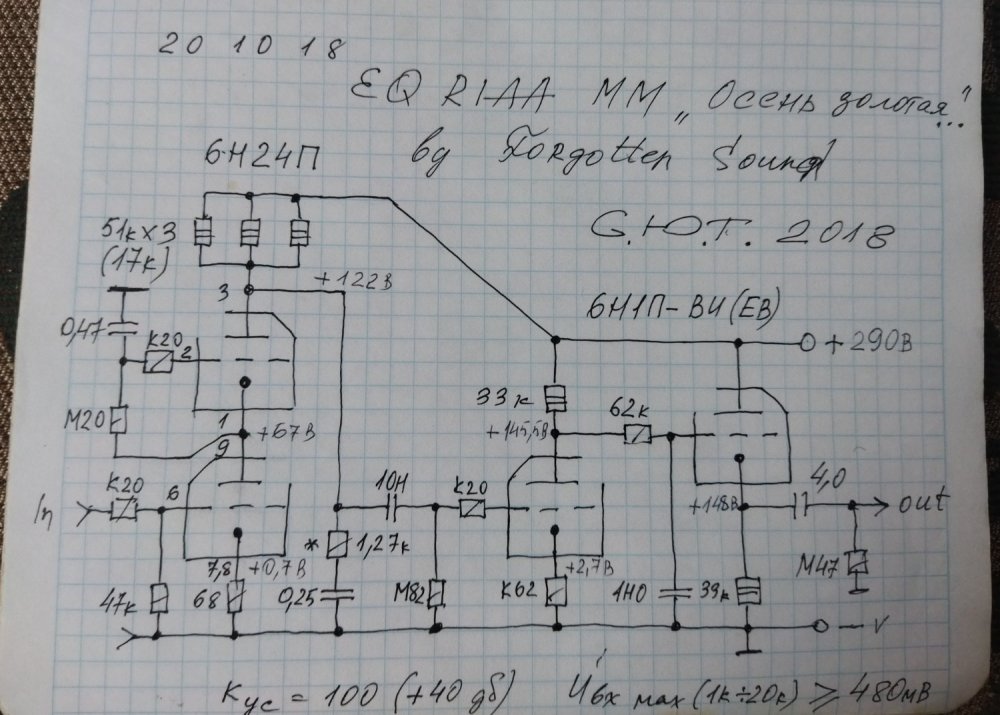 20 10 18
EQ RIAA MM „Осень золотая..."
by Forgotten Sound
С.Ю.Т. 2018
6Н24П
51к×3
(17к)
3
+122В
0,47
К20
2
М20
1
+67В
9
6Н1П-ВИ(ЕВ)
+290В
33к
62к
+145,5В
In
К20
6
10Н
К20
4,0
out
+148В
* 1,27к
7,8
+0,7В
+2,7В
М47
47к
68
0,25
М82
К62
1Н0
39к
— V
Kус = 100 (+40 дб)
Uвх max (1к÷20к) ⩾ 480мВ